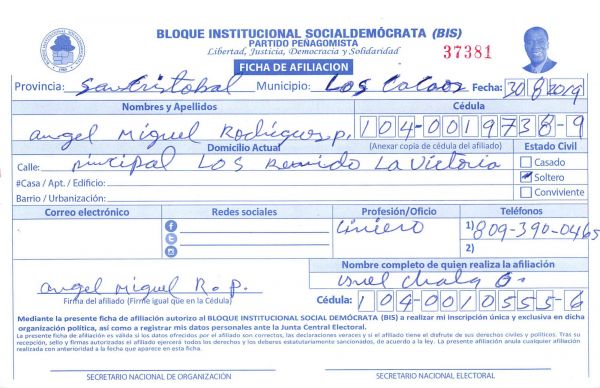 BLOQUE INSTITUCIONAL SOCIALDEMÓCRATA (BIS)
PARTIDO PEÑAGOMISTA
Libertad, Justicia, Democracia y Solidaridad
37381
FICHA DE AFILIACION
Provincia: San Cristobal Municipio: Los Cacaos Fecha: 30/8/2019
Nombres y Apellidos Cédula
angel Miguel Rodriguez p. 104-0019738-9
Domicilio Actual (Anexar copia de cédula del afiliado) Estado Civil
Calle: principal Los La Victoria
Casado
Soltero
Conviviente
#Casa / Apt. / Edificio:
Barrio / Urbanización:
Correo electrónico Redes sociales Profesión/Oficio Teléfonos
1) 809-390-0465
2)
Nombre completo de quien realiza la afiliación
angel miguel R. P.
Firma del afiliado (Firme igual que en la Cédula)
Cédula: 104-0010555-6
Mediante la presente ficha de afiliación autorizo al BLOQUE INSTITUCIONAL SOCIAL DEMÓCRATA (BIS) a realizar mi inscripción única y exclusiva en dicha
organización política, así como a registrar mis datos personales ante la Junta Central Electoral.
La presente ficha de afiliación es válida si los datos ofrecidos por el afiliado son correctos, las declaraciones veraces y si el afiliado tiene el disfrute de sus derechos civiles y políticos. Tras su
recepción, sello y firmas autorizadas el afiliado ejercerá todos los derechos y los deberes estatutariamente sancionados, de acuerdo a la ley. La presente afiliación anula cualquier afiliación
realizada con anterioridad a la fecha que aparece en esta ficha.
SECRETARIO NACIONAL DE ORGANIZACIÓN SECRETARIO NACIONAL ELECTORAL